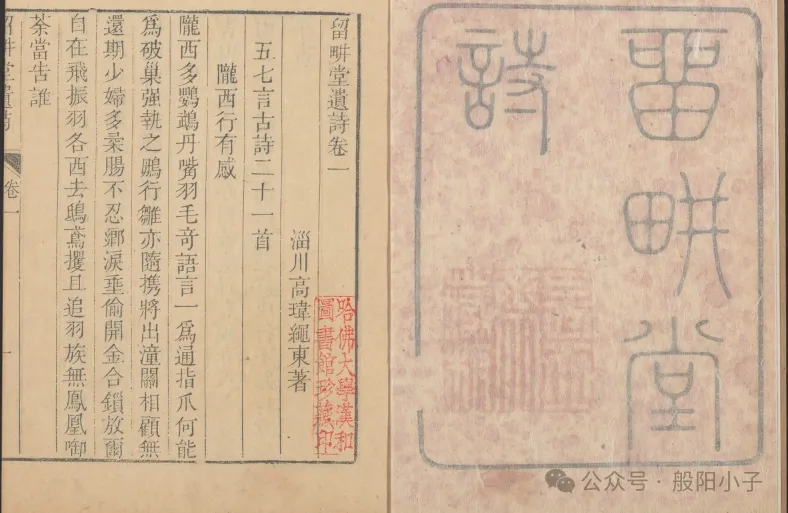 留畊堂
詩
留畊堂遺詩卷一
淄川高瑋繩東著
五七言古詩二十一首
隴西行有感
隴西多鸚鵡丹嘴羽毛竒語言一為通指爪何能
為破巢强執之鵰行雛亦隨携將出潼關相顧無
還期少婦多柔腸不忍鄉淚垂偷開金合鎖放爾
自在飛振羽各西去鴟鳶攫且追羽族無鳳凰啣
荼當告誰
留畊堂遺詩
卷一
一
哈佛大學漢和
圖書館珍藏印
公众号·般阳小子